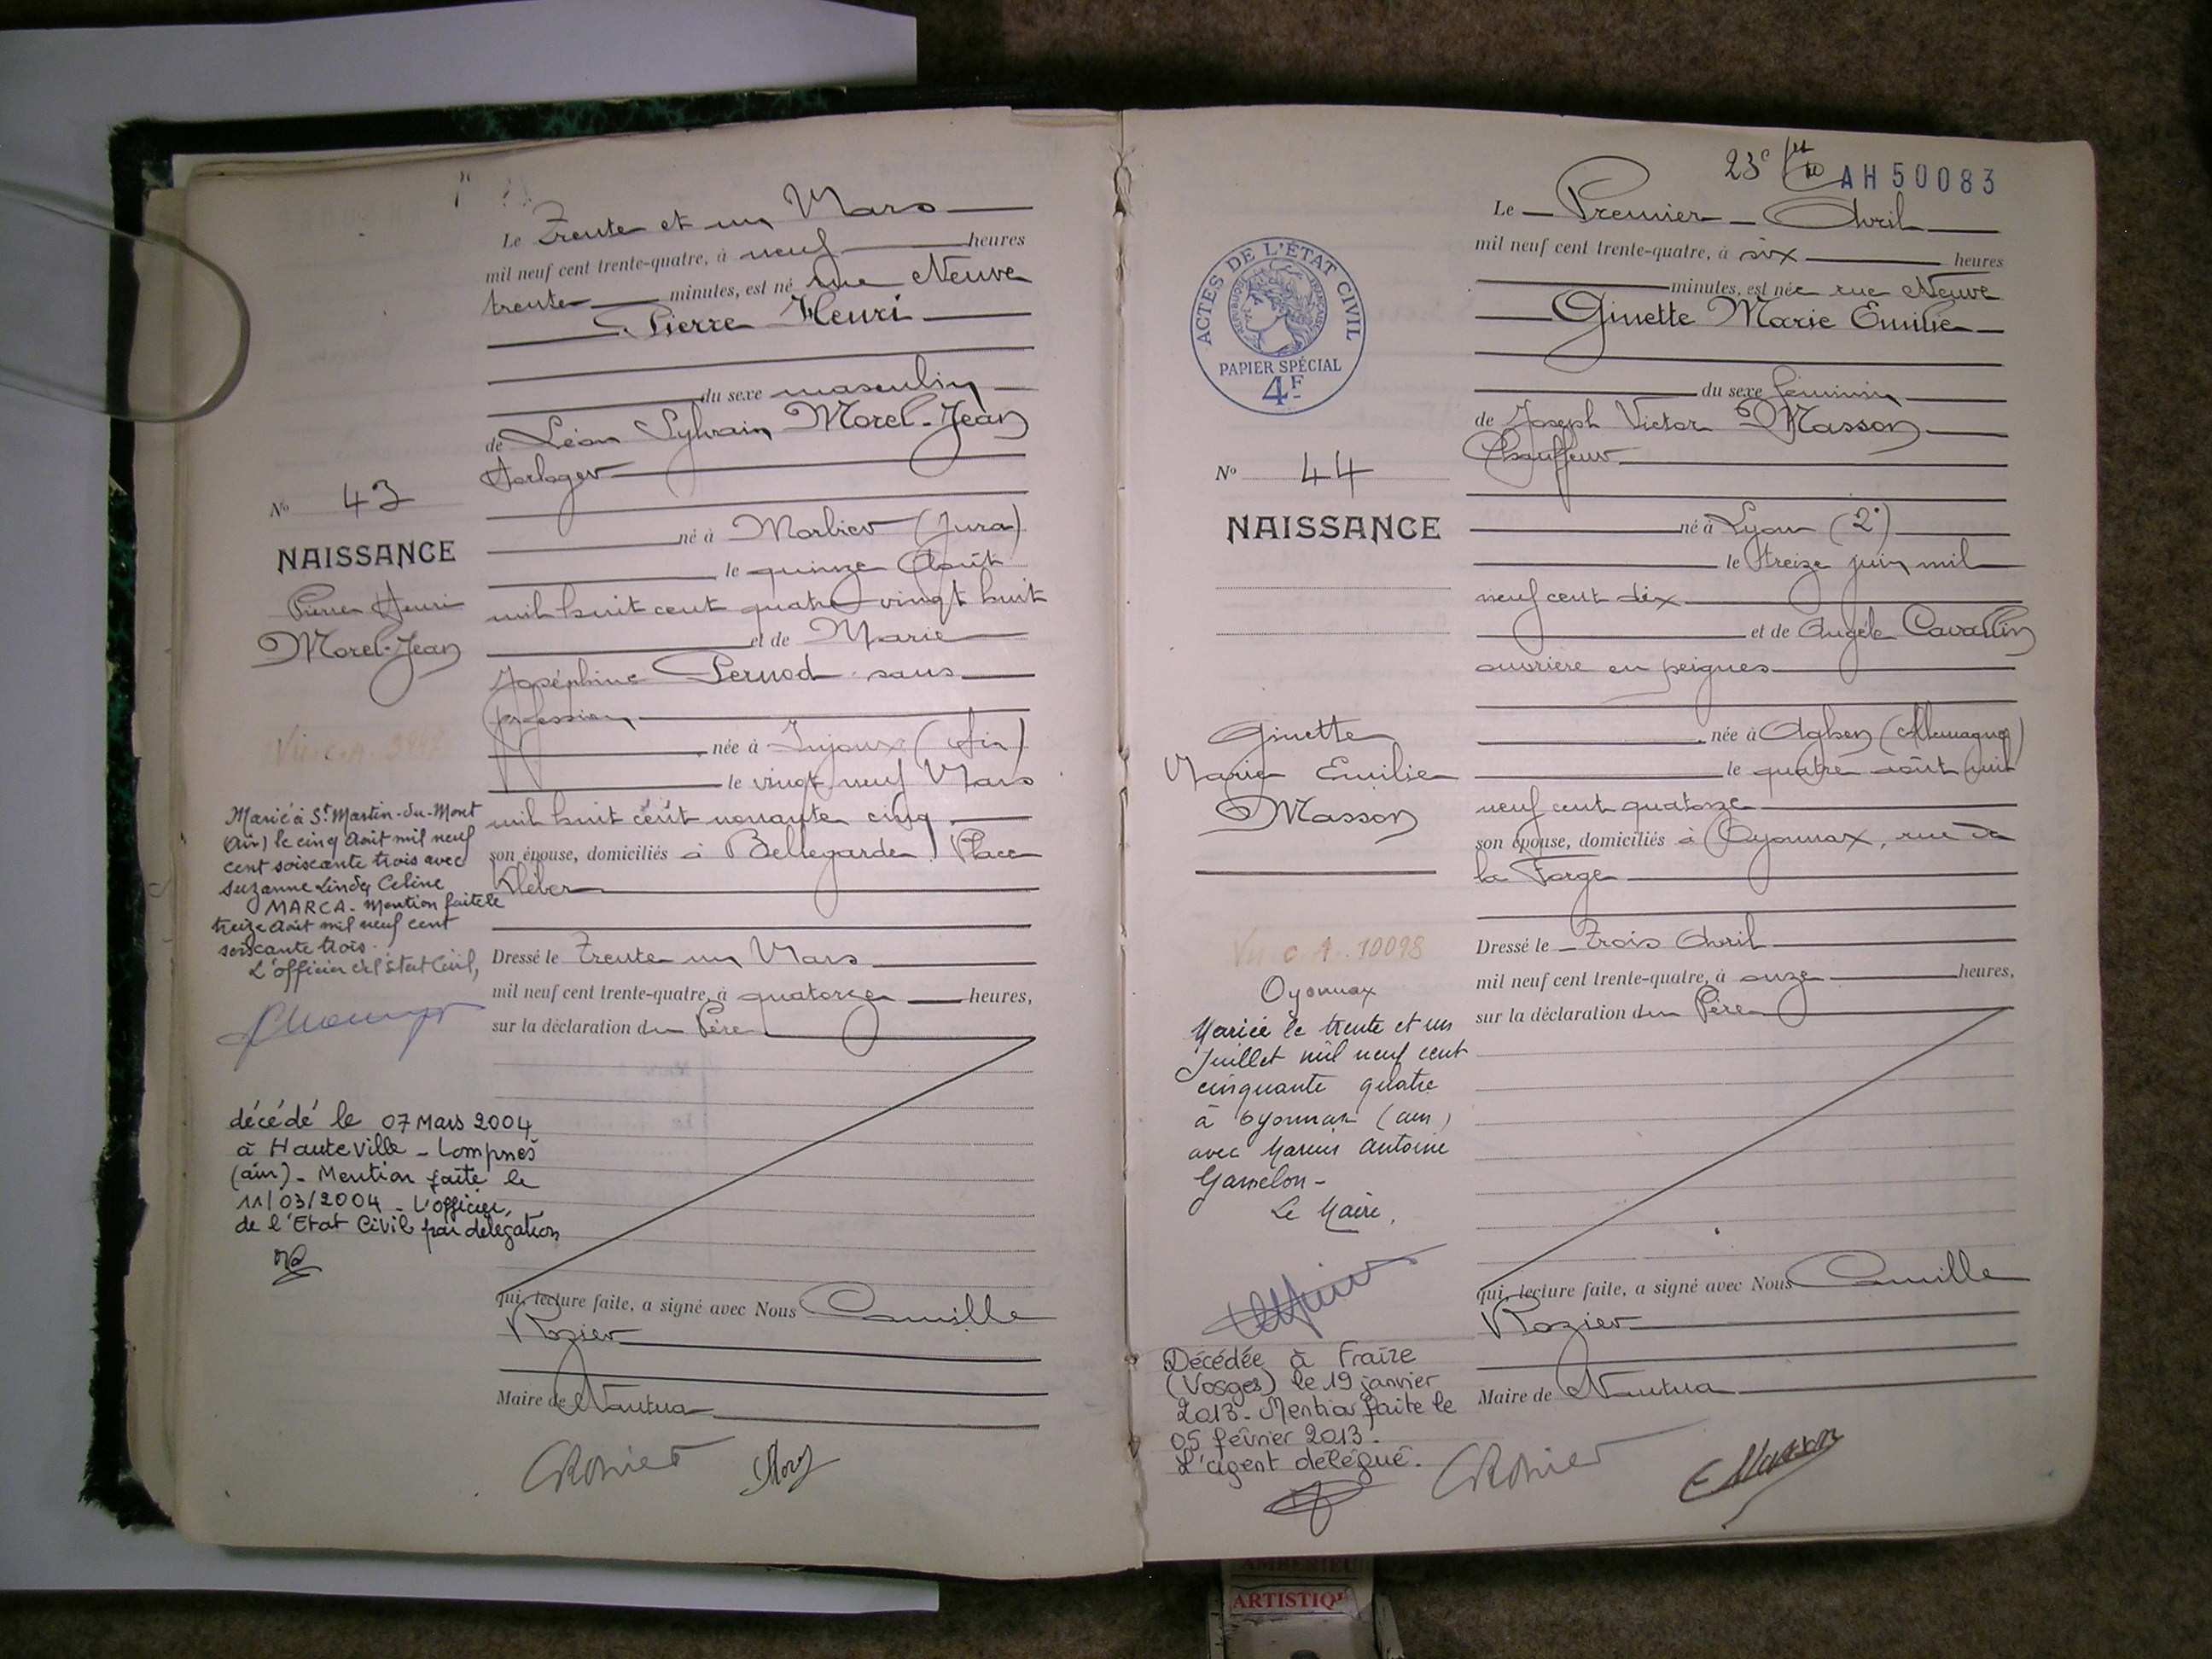 Le Trente et un Mars
mil neuf cent trente-quatre, à neuf heures
trente minutes, est né rue Neuve
Pierre Henri
du sexe masculin
de Léon Sylvain Morel-Jean
Horloger
né à Morbier (Jura)
le quinze Août
mil huit cent quatre vingt huit
et de Marie
Joséphine Pernod sans
profession
née à Injoux (Ain)
le vingt neuf Mars
mil huit cent nonante cinq
son épouse, domiciliés à Bellegarde, Place
Kléber
Dressé le Trente un Mars
mil neuf cent trente-quatre, à quatorze heures,
sur la déclaration du Père
qui, lecture faite, a signé avec Nous Camille
Rozier
Maire de Nantua
CRozier
No 43
NAISSANCE
Pierre Henri
Morel-Jean
Vu. C.A.
Marié à St Martin-du-Mont
(Ain) le cinq Août mil neuf
cent soixante trois avec
Suzanne Linda Celine
MARCA. Mention faite le
treize Août mil neuf cent
soixante trois.
L'officier de l'état Civil,
décédé le 07 Mars 2004
à Hauteville - Lompnes
(ain) - Mention faite le
11/03/2004 - L'officier,
de l'Etat Civil par délégation
23e AH 50083
ACTES DE L'ÉTAT CIVIL
RÉPUBLIQUE FRANÇAISE
PAPIER SPÉCIAL
4F
Le Premier Avril
mil neuf cent trente-quatre, à six heures
minutes, est née rue Neuve
Ginette Marie Emilie
du sexe féminin
de Joseph Victor Masson
Chauffeur
né à Lyon (2e)
le treize juin mil
neuf cent dix
et de Angèle Cavallin
ouvrière en peignes
née à (Allemagne)
le quatre août mil
neuf cent quatorze
son épouse, domiciliés à Oyonnax, rue de
la Forge
Dressé le Trois Avril
mil neuf cent trente-quatre, à onze heures,
sur la déclaration du Père
qui, lecture faite, a signé avec Nous Camille
Rozier
Maire de Nantua
CRozier
Masson
No 44
NAISSANCE
Ginette
Marie Emilie
Masson
Vu C A. 10098
Oyonnax
Mariée le trente et un
Juillet mil neuf cent
cinquante quatre
à Oyonnax (ain)
avec Marius Antoine
Gamelon -
Le Maire,
Décédée à Fraize
(Vosges) le 19 janvier
2013 - Mention faite le
05 février 2013.
L'agent délégué.
AMBERIEU
ARTISTIQU